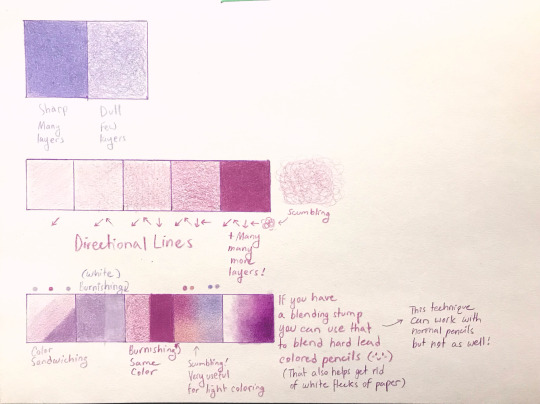 Sharp
Many
layers
Dull
Few
layers
scumbling
Directional Lines
+ Many
many
more
layers!
(white)
Burnishing?
Color
Sandwiching
Burnishing?
Same
Color
Scumbling!
Very useful
for light coloring
If you have
a blending stump
you can use that
to blend hard lead
colored pencils
(That also helps get rid
of white flecks of paper)
This technique
can work with
normal pencils
but not as well!